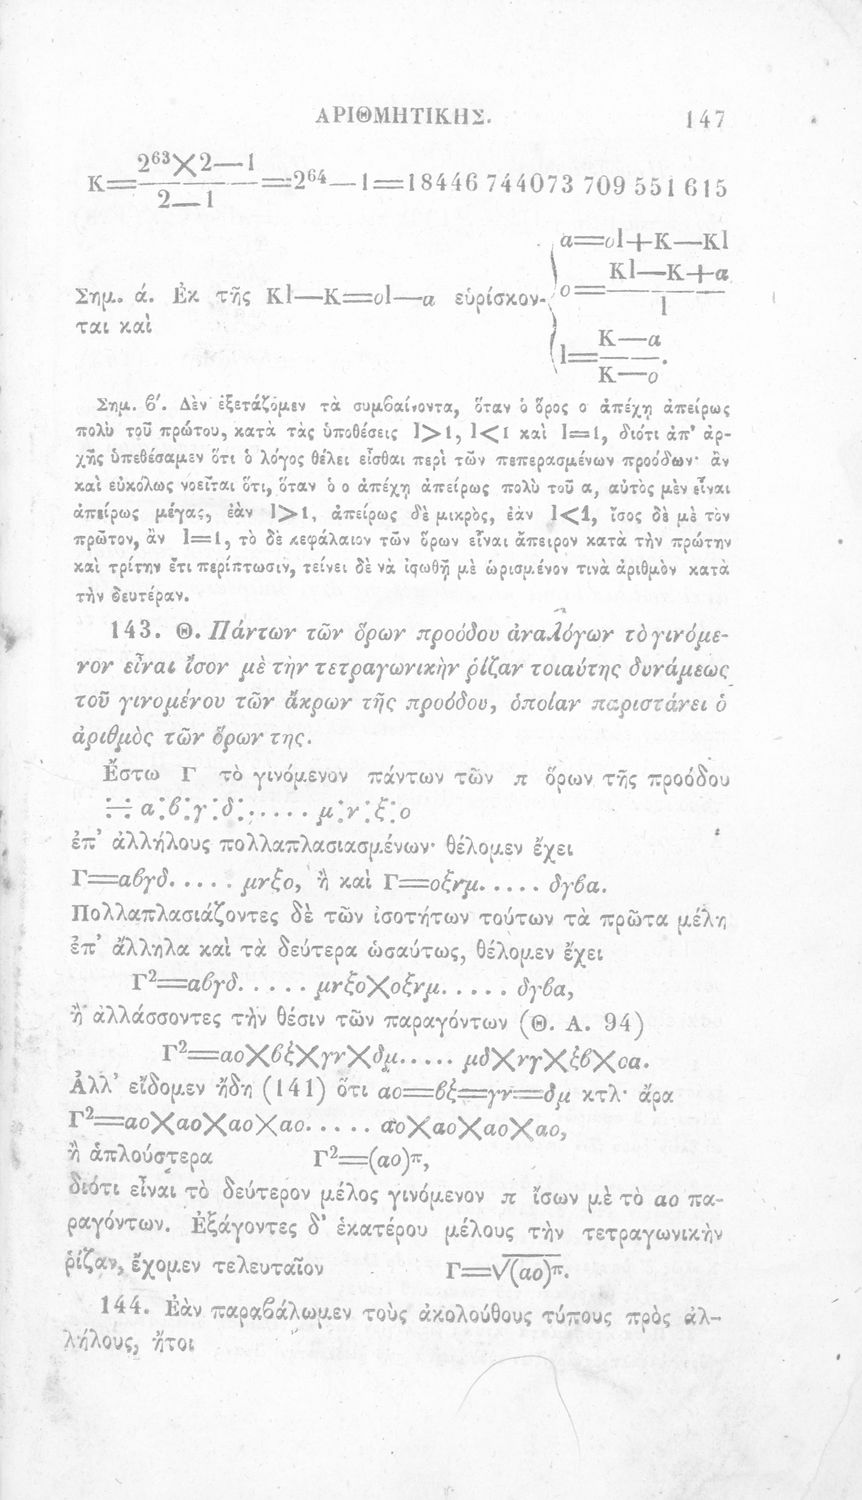 ΑΡΙΘΜΗΤΙΚΗΣ. 147
K=(2⁶³×2—1)/(2—1)=2⁶⁴—1=18446 744073 709 551 615
α=ol+K—Kl
Σημ. ά. Ἐκ τῆς Kl—K=ol—α εὑρίσκον- o=(Kl—K+α)/l
ται καὶ
l=(K—α)/(K—o).
Σημ. ϐ'. Δὲν ἐξετάζομεν τὰ συμϐαίνοντα, ὅταν ὁ ὅρος ο ἀπέχῃ ἀπείρως
πολὺ τοῦ πρώτου, κατὰ τὰς ὑποθέσεις l>1, l<1 καὶ l=1, διότι ἀπ' ἀρ-
χῆς ὑπεθέσαμεν ὅτι ὁ λόγος θέλει εἶσθαι περὶ τῶν πεπερασμένων προόδων· ἂν
καὶ εὐκόλως νοεῖται ὅτι, ὅταν ὁ ο ἀπέχῃ ἀπείρως πολὺ τοῦ α, αὐτὸς μὲν εἶναι
ἀπείρως μέγας, ἐὰν l>1, ἀπείρως δὲ μικρὸς, ἐὰν l<1, ἴσος δὲ μὲ τὸν
πρῶτον, ἂν l=1, τὸ δὲ κεφάλαιον τῶν ὅρων εἶναι ἄπειρον κατὰ τὴν πρώτην
καὶ τρίτην ἔτι περίπτωσιν, τείνει δὲ νὰ ἰσωθῇ μὲ ὡρισμένον τινὰ ἀριθμὸν κατὰ
τὴν δευτέραν.
143. Θ. Πάντων τῶν ὅρων προόδου ἀναλόγων τὸ γινόμε-
νον εἶναι ἴσον μὲ τὴν τετραγωνικὴν ῥίζαν τοιαύτης δυνάμεως
τοῦ γινομένου τῶν ἄκρων τῆς προόδου, ὁποίαν παριστάνει ὁ
ἀριθμὸς τῶν ὅρων της.
Ἔστω Γ τὸ γινόμενον πάντων τῶν π ὅρων τῆς προόδου
∺ α:ϐ:γ:δ:.....μ:ν:ξ:ο
ἐπ' ἀλλήλους πολλαπλασιασμένων· θέλομεν ἔχει
Γ=αϐγδ.....μνξο, ἢ καὶ Γ=οξνμ.....δγϐα.
Πολλαπλασιάζοντες δὲ τῶν ἰσοτήτων τούτων τὰ πρῶτα μέλη
ἐπ' ἄλληλα καὶ τὰ δεύτερα ὡσαύτως, θέλομεν ἔχει
Γ²=αϐγδ.....μνξο×οξνμ.....δγϐα,
ἢ ἀλλάσσοντες τὴν θέσιν τῶν παραγόντων (Θ. Α. 94)
Γ²=αο×ϐξ×γν×δμ.....μδ×νγ×ξϐ×οα.
Ἀλλ' εἴδομεν ἤδη (141) ὅτι αο=ϐξ=γν=δμ κτλ· ἄρα
Γ²=αο×αο×αο×αο.....αο×αο×αο×αο,
ἢ ἁπλούστερα Γ²=(αο)^π,
διότι εἶναι τὸ δεύτερον μέλος γινόμενον π ἴσων μὲ τὸ αο πα-
ραγόντων. Ἐξάγοντες δ' ἑκατέρου μέλους τὴν τετραγωνικὴν
ῥίζαν, ἔχομεν τελευταῖον Γ=√(αο)^π.
144. Ἐὰν παραϐάλωμεν τοὺς ἀκολούθους τύπους πρὸς ἀλ-
λήλους, ἤτοι